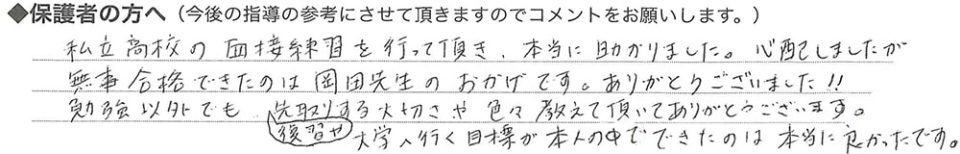 ◆保護者の方へ（今後の指導の参考にさせて頂きますのでコメントをお願いします。）
私立高校の面接練習を行って頂き、本当に助かりました。心配しましたが
無事合格できたのは岡田先生のおかげです。ありがとうございました!!
勉強以外でも、先取りする大切さや色々教えて頂いてありがとうございます。
復習や 大学へ行く目標が本人の中でできたのは本当に良かったです。